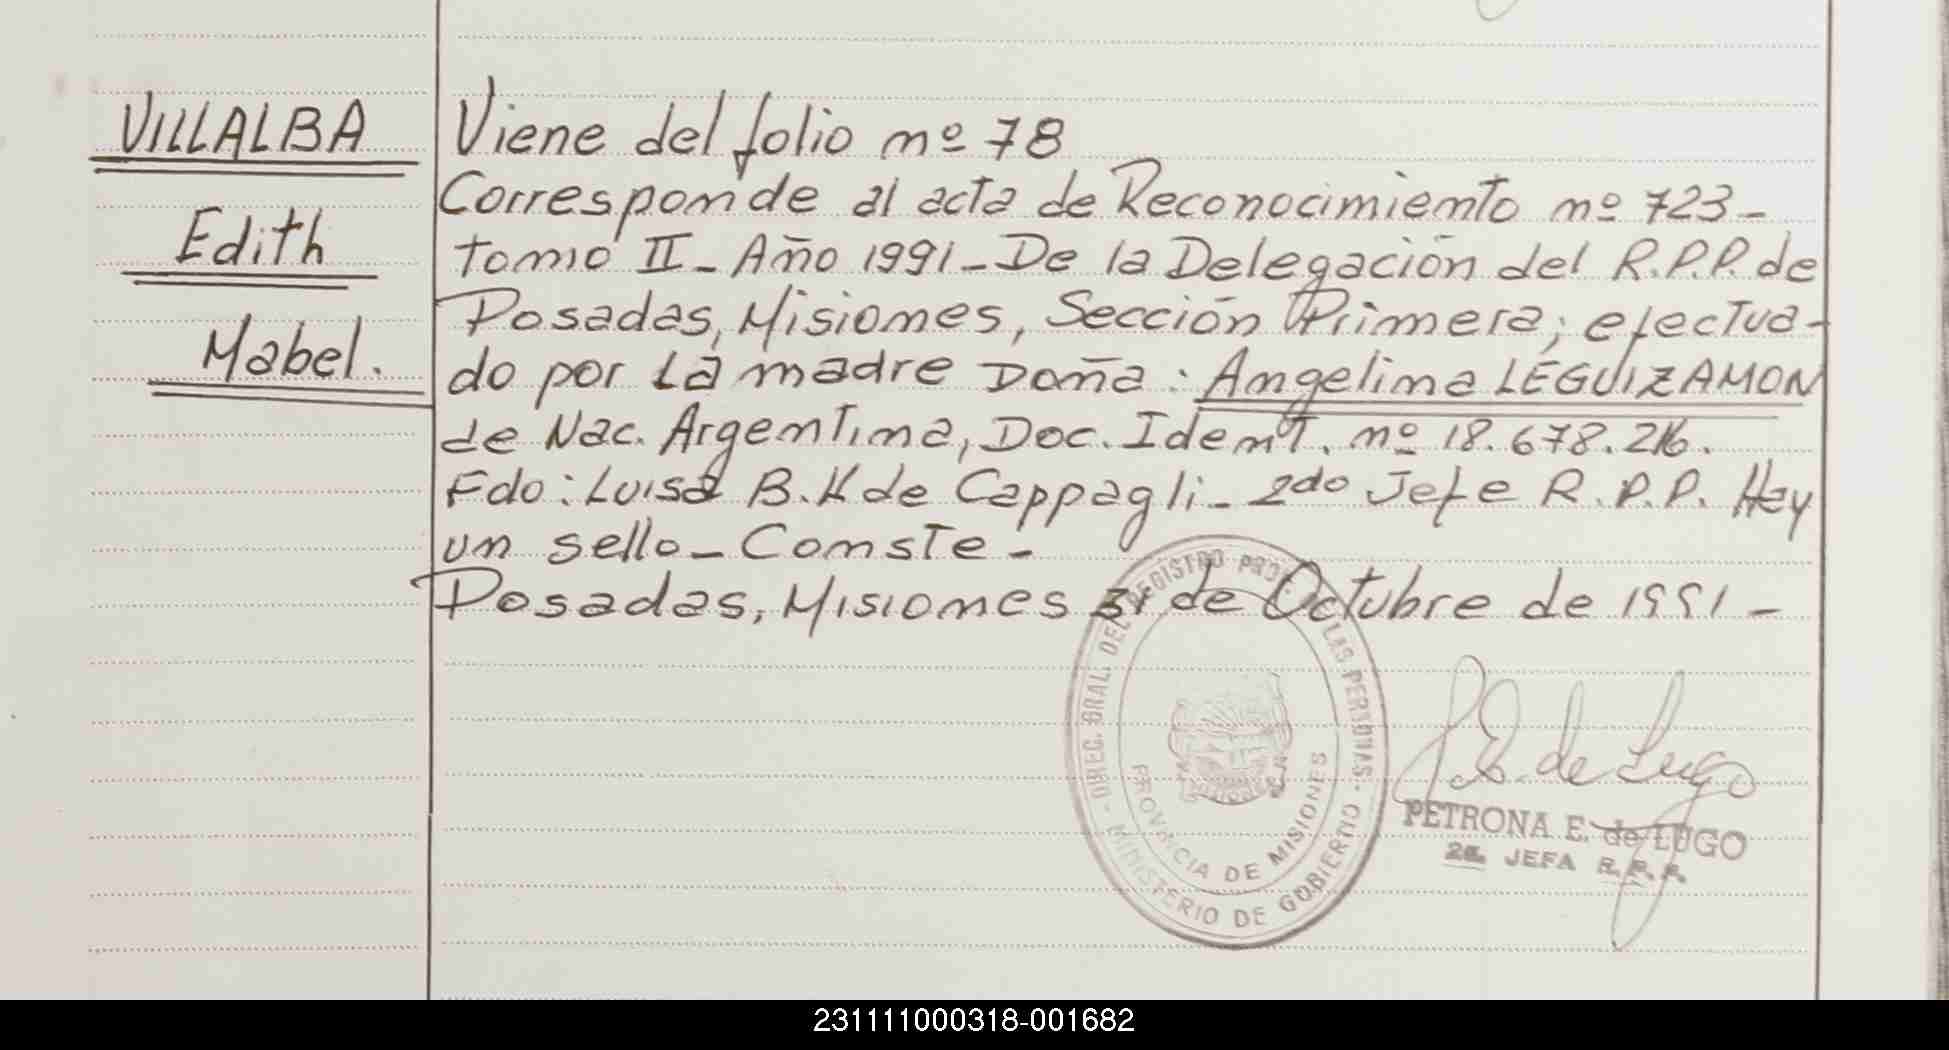 VILLALBA
Edith
Mabel.
Viene del folio nº 78
Corresponde al acta de Reconocimiento nº 723-
tomo II - Año 1991 - De la Delegación del R.P.P. de
Posadas, Misiones, Sección Primera; efectua-
do por La madre Doña: Angelina LEGUIZAMON
de Nac. Argentina, Doc. Ident. nº 18.678.216.
Fdo: Luisa B. K de Cappagli - 2do Jefe R.P.P. Hay
un sello - Conste -
Posadas, Misiones 31 de Octubre de 1991 -
DIREC. GRAL. DEL REGISTRO PROV. LAS PERSONAS
MINISTERIO DE GOBIERNO
PROVINCIA DE MISIONES
de Lugo
PETRONA E. de LUGO
2a. JEFA R.P.P.
231111000318-001682